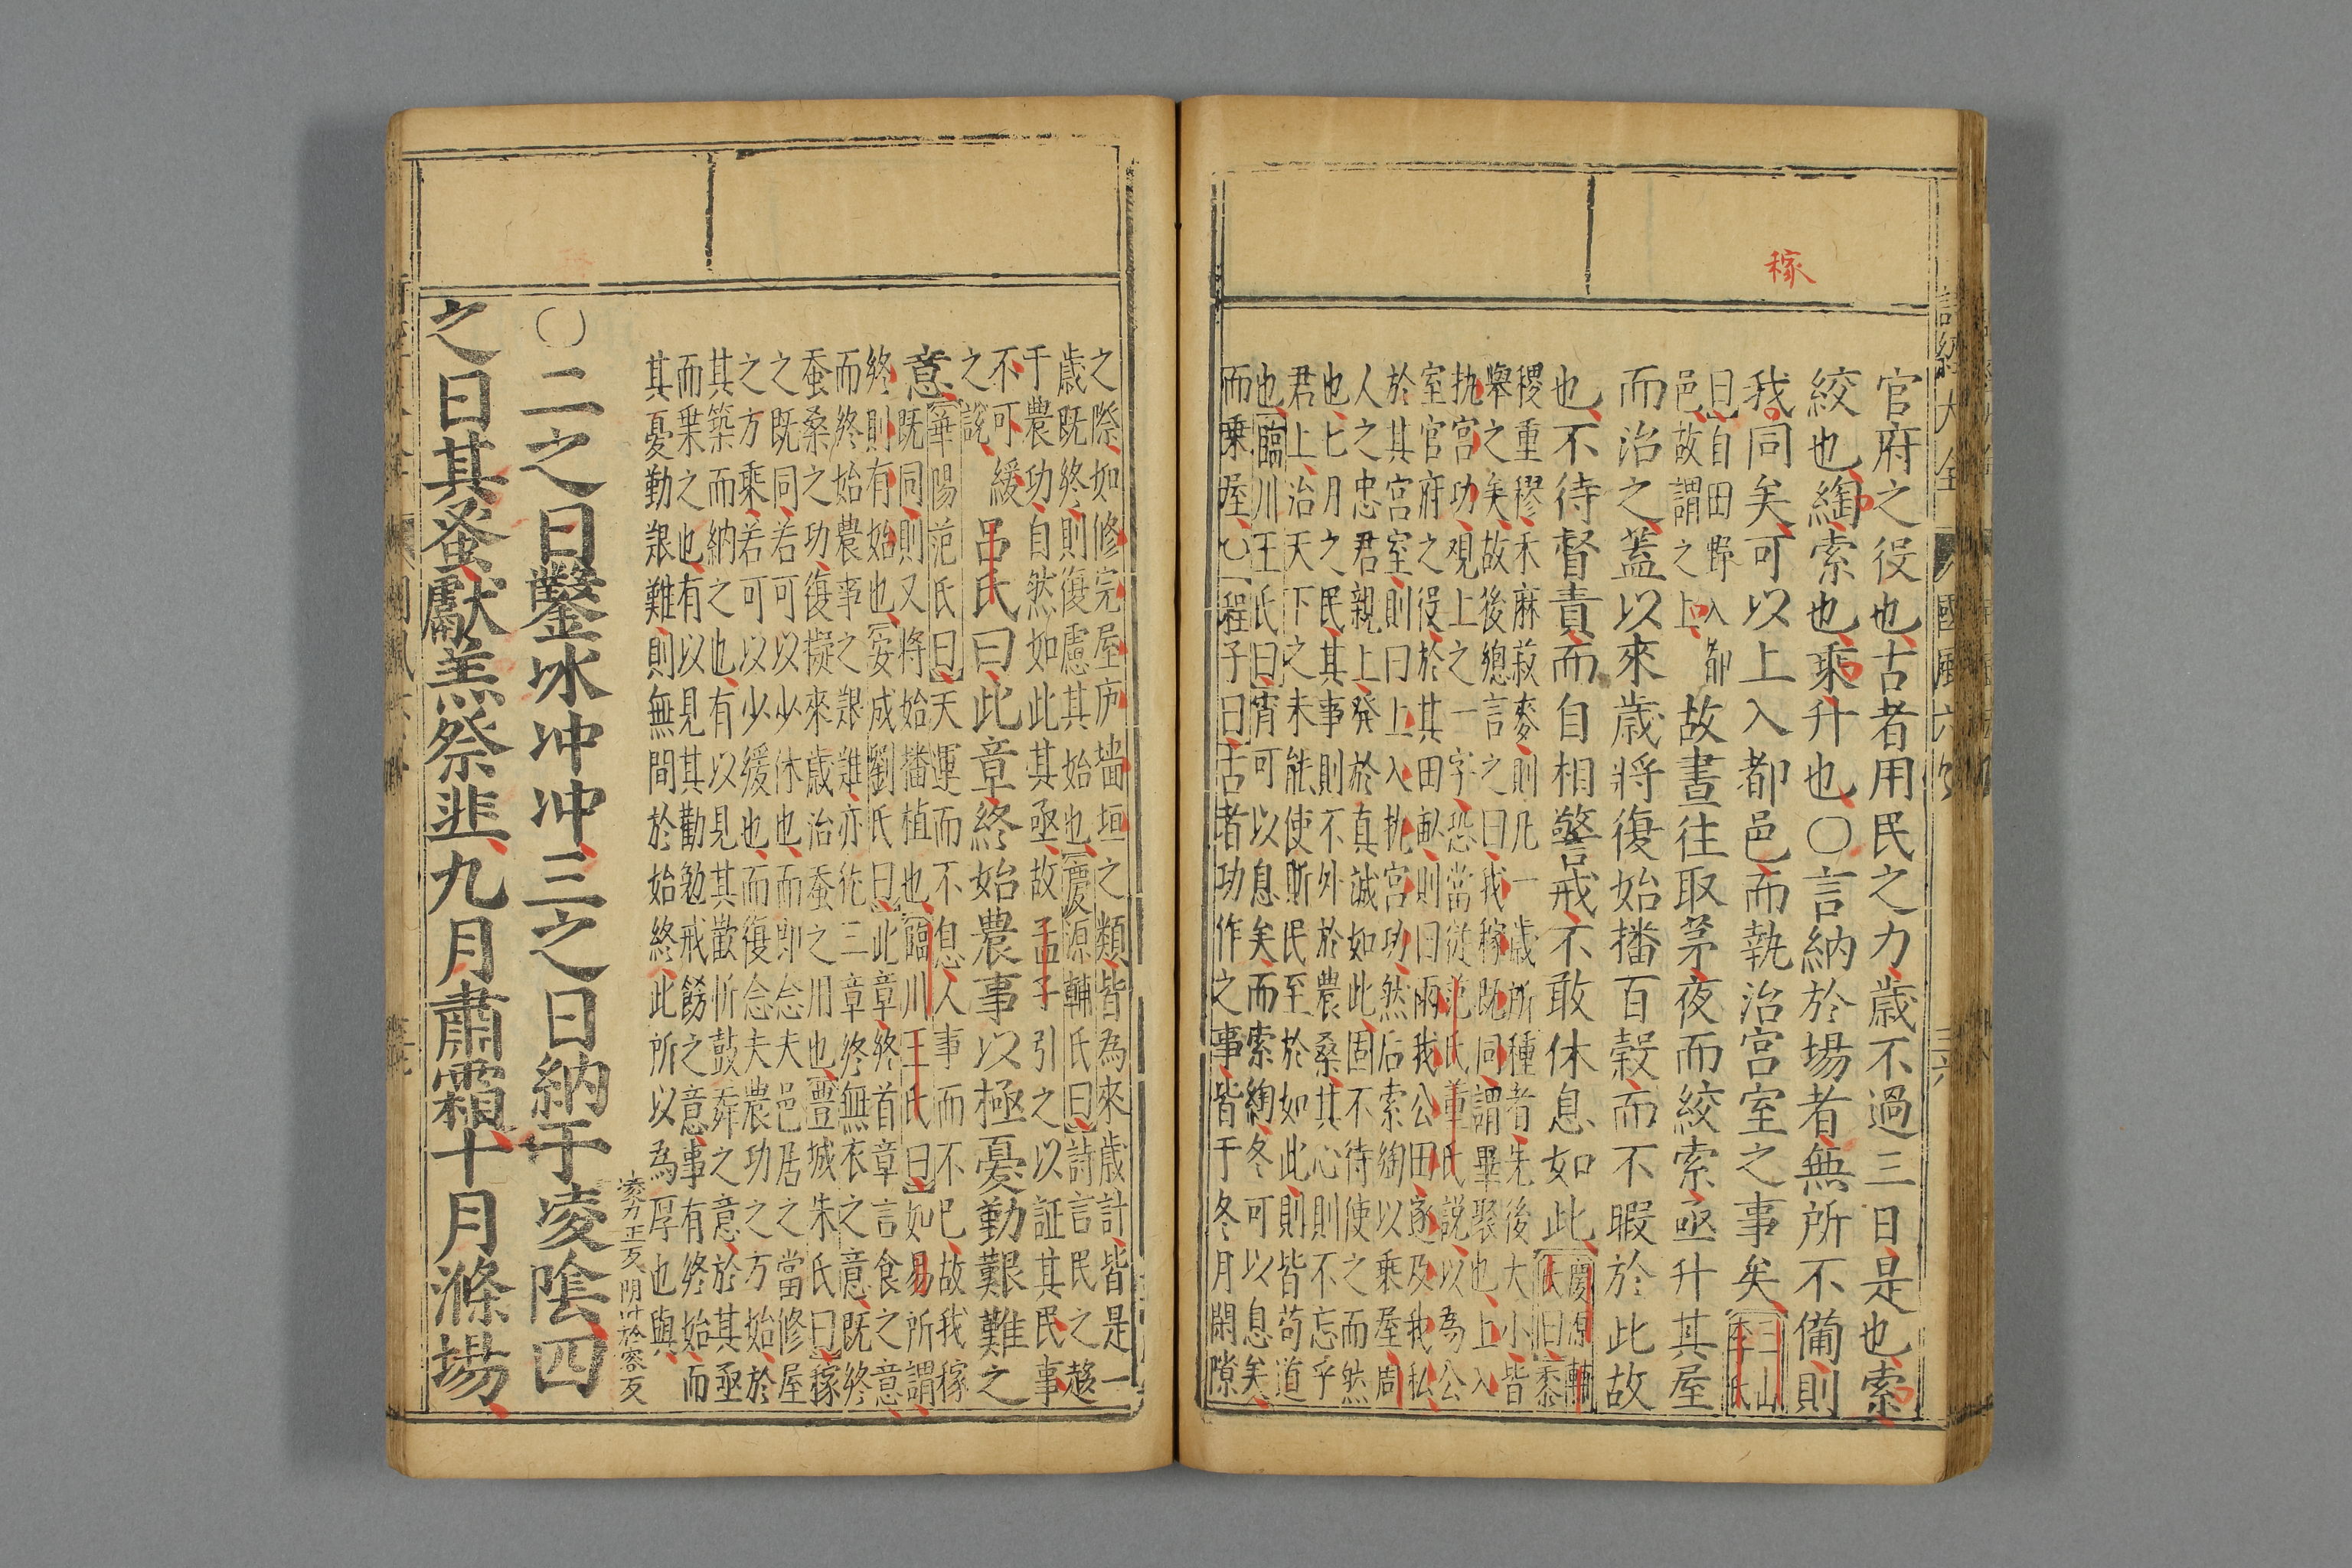 稼
官府之役也古者用民之力歲不過三日是也索
絞也綯索也乘升也○言納於場者無所不備則
我同矣可以上入都邑而執治宮室之事矣三山李氏
曰自田野入都邑故謂之上故晝往取茅夜而絞索亟升其屋
而治之蓋以來歲將復始播百穀而不暇於此故
也不待督責而自相警戒不敢休息如此慶源輔氏曰黍
稷重穋禾麻菽麥則凡一歲所種者先後大小皆
舉之矣故後總言之曰我稼既同謂畢聚也上入
執宮功觀上之一字恐當從范氏董氏說以為公
室官府之役於其田畝則曰雨我公田遂及我私
於其宮室則曰上入執宮功然后索綯以乘屋周
人之忠君親上發於真誠如此固不待使之而然
也七月之民其事則不外於農桑其心則不忘乎
君上治天下之未能使斯民至於如此則皆苟道
也臨川王氏曰宵可以息矣而索綯冬可以息矣
而乘屋程子曰古者功作之事皆于冬月閑隙
詩經大全 國風六
之際如修完屋庐墙垣之類皆為來歲計皆是一
歲既終則復慮其始也慶源輔氏曰詩言民之趍
于農功自然如此其亟故孟子引之以証其民事
不可緩
之說
呂氏曰此章終始農事以極憂勤艱難之
意華陽范氏曰天運而不息人事而不已故我稼
既同則又將始播植也臨川王氏曰如易所謂
終則有始也安成劉氏曰此章終首章言食之意
而終始農事之艱難亦猶三章終無衣之意既終
蚕桑之功復擬來歲治蚕之用也豐城朱氏曰稼
之既同若可以少休也而即念夫邑居之當修屋
之方乘若可以少緩也而復念夫農功之方始於
其築而納之也有以見其歡忻鼓舞之意於其亟
而棄之也有以見其勸勉戒飭之意事有終始而
其憂勤艱難則無間於始終此所以為厚也與
○二之日鑿冰冲冲三之日納于凌陰四
凌力正反陰叶於容反
之日其蚤獻羔祭韭九月肅霜十月滌場